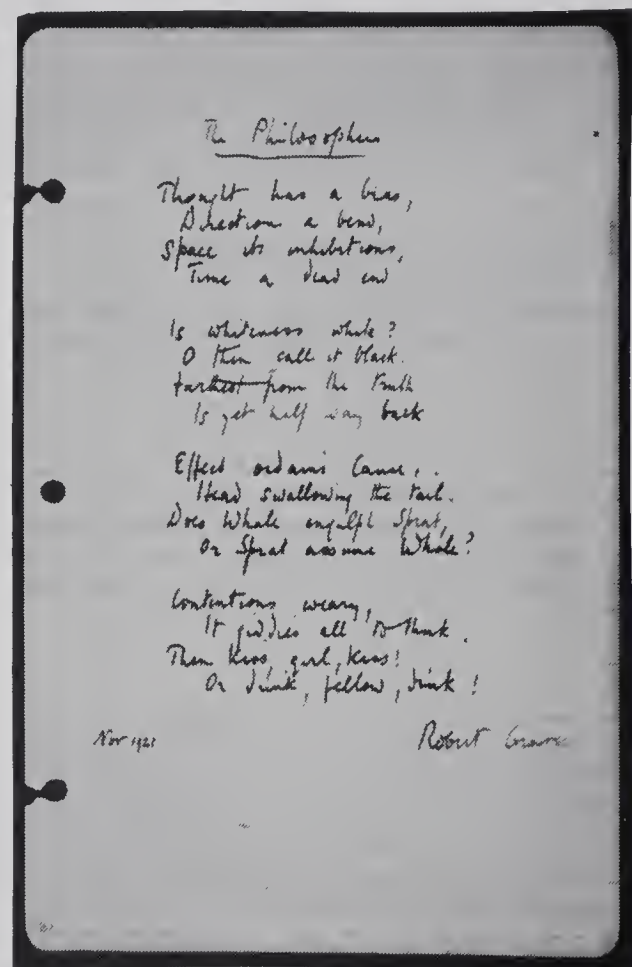 The Philosophers
Thought has a bias,
Direction a bend,
Space its inhibitions,
Time a dead end
Is whiteness white?
O then call it black.
Farthest from the truth
Is yet half way back
Effect ordains Cause,
Head swallowing the tail.
Does Whale engulph Sprat,
Or Sprat assume Whale?
Contentions weary,
It giddies all to think.
Then kiss, girl, kiss!
Or drink, fellow, drink!
Nov 1921
Robert Graves